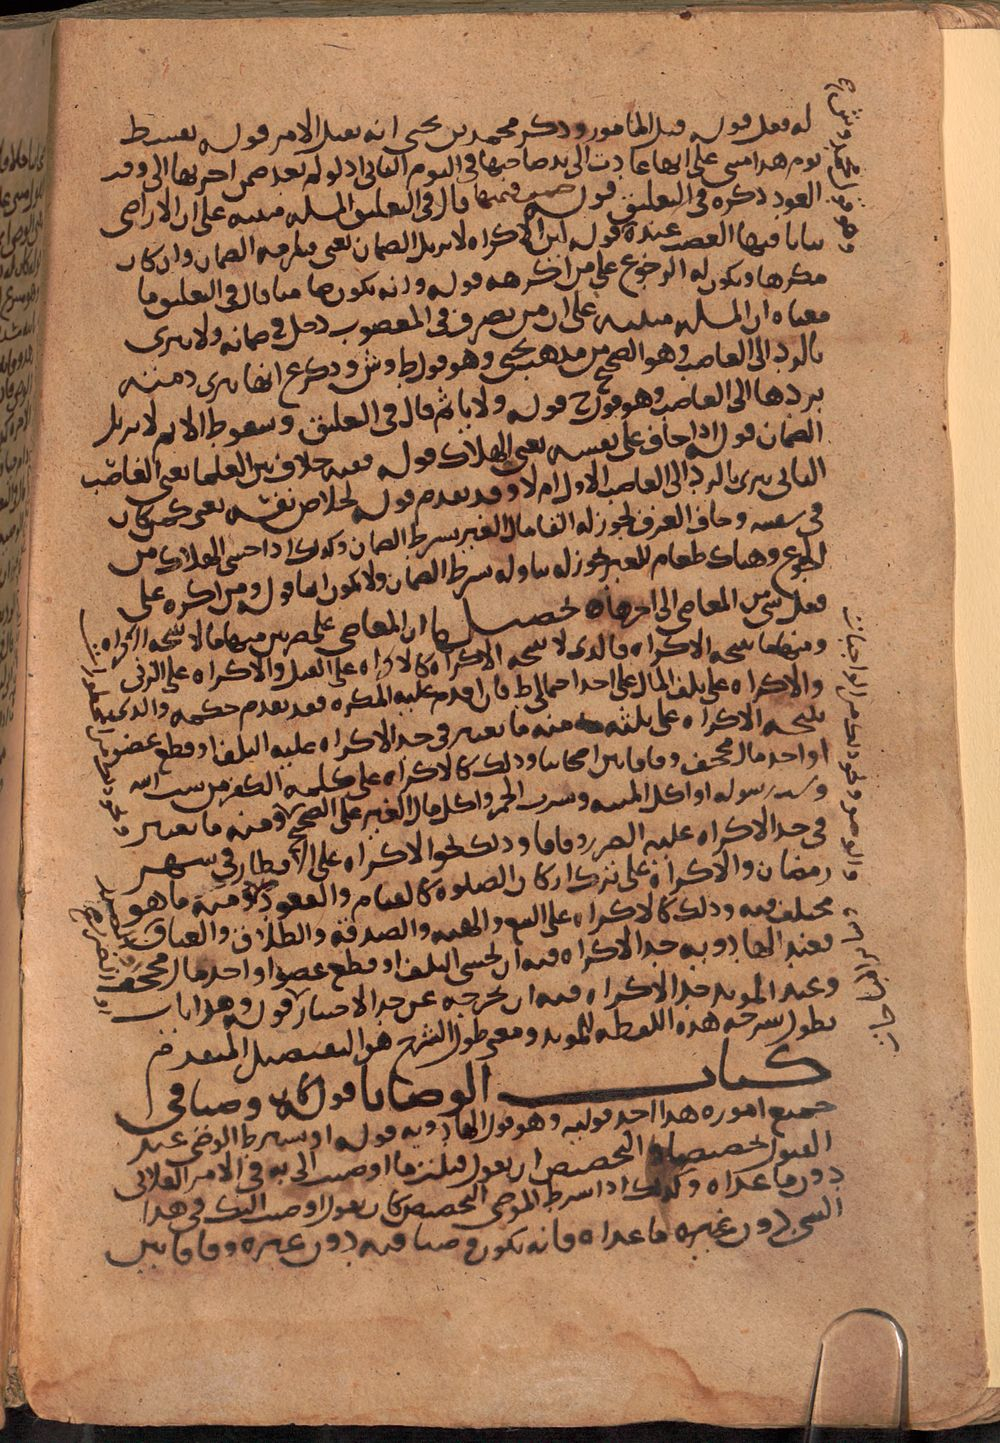 له فعل قوله قبل المامور وذكر محمد بن يحيى انه يقبل الامر قوله بقسط
يوم هذا مبني على انها عادت الى يد صاحبها في اليوم الثاني اذ لو لم تعد ضمن اجرتها الى وقت
العود ذكره في التعليق قوله ضمن قيمتها قال في التعليق المسله مبنيه على ان الاراضي
يتاتا فيها الغصب عنده قوله لان الاكراه لا يزيل الضمان يعني فيلزمه الضمان وان كان
مكرها ويكون له الرجوع على من اكرهه قوله وانه يكون ضامنا قال في التعليق ما
معناه ان المسله مبنيه على ان من تصرف في المغصوب دخل في ضمانه ولا يبرى
بالرد الى الغاصب وهو الصحيح من مذهب يحيى وهو قول ط و ش وذكر ع انها تبرى ذمته
بردها الى الغاصب وهو قول ح قوله ولا ياثم قال في التعليق وسقوط الاثم لا يزيل
الضمان قوله اذا خاف على نفسه يعني الهلاك قوله ففيه خلاف بين العلما يعني الغاصب
الثاني يبرى بالرد الى الغاصب الاول ام لا وقد تقدم قوله لخلاص نفسه يعني كمن كان
في سفينه وخاف الغرق يجوز له القا مال الغير بشرط الضمان وكذلك اذا خشي الهلاك من
الجوع وهناك طعام للغير يجوز له تناوله بشرط الضمان ولا يكون اثما قوله ومن اكره على
فعل شي من المعاصي الى اخرهاه تحصيلها ان المعاصي على ضربين منها ما لا يبيحه الاكراه
ومنها ما يبيحه الاكراه فالذي لا يبيحه الاكراه كالاكراه على القتل والاكراه على الزنى
والاكراه على تلف المال على احد احتمالي ط فان اقدم عليه المكره فقد تقدم حكمه والذي
يبيحه الاكراه على ثلثه منه ما يعتبر في حد الاكراه عليه التلف او قطع عضو
او اخذ مال مجحف وفاقا بين اصحابنا وذلك كالاكراه على كلمه الكفر من سب الله
وسب رسوله او اكل الميته وشرب الخمر واكل مال الغير على الصحيح ومنه ما يعتبر
في حد الاكراه عليه الضرر وفاقا وذلك نحو الاكراه على الافطار في شهر
رمضان والاكراه على ترك اركان الصلوه كالقيام والقعود ومنه ما هو
مختلف فيه وذلك كالاكراه على البيع والهبه والصدقه والطلاق والعتاق
فعند الهادويه حد الاكراه فيه ان يخشى التلف او قطع عضو او اخذ مال مجحف
وعند المويد حد الاكراه فيه ان يخرجه عن حد الاختيار قوله وهذا باب
يطول شرحه هذه اللفظه للمويد ومعنى طول الشرح هو التفصيل المتقدم
كتاب الوصايا قوله كان وصيا في
جميع اموره هذا احد قوليه وهو قول الهادويه قوله او يشرط الوصي عند
القبول تخصيصا والتخصيص ان يقول قبلت ما اوصيت الي به في الامر الفلاني
دون ما عداه وكذلك اذا شرط الموصي التخصيص كان يقول اوصيت اليك في هذا
الشي دون غيره ما عداه فانه يكون وصيا فيه دون غيره وفاقا بين